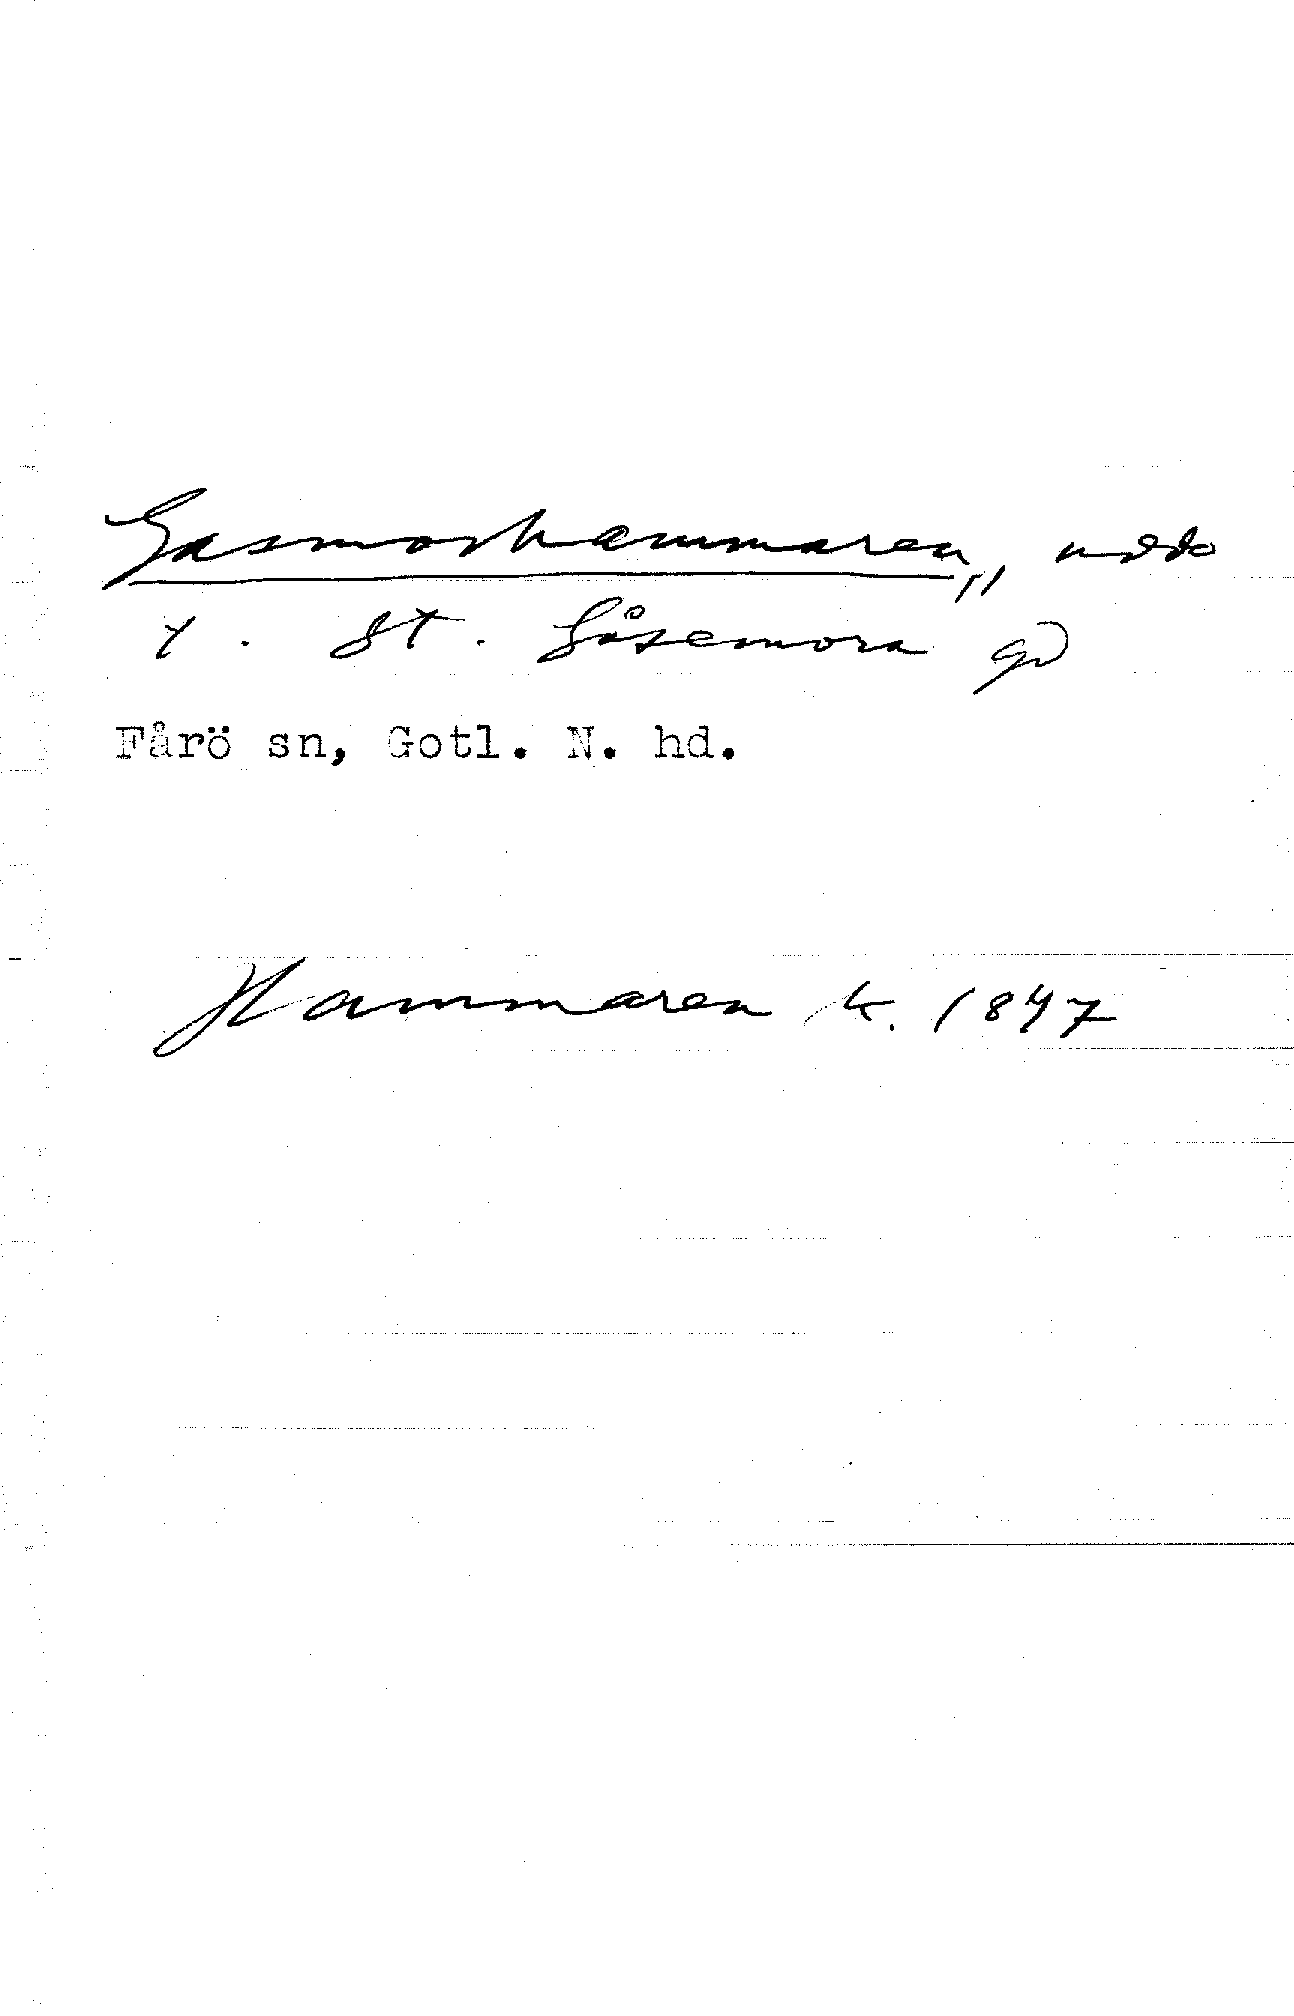 Gasmorhammaren, udde
t. St. Gåsemora gd
Fårö sn, Gotl. N. hd.
Hammaren k. 1847